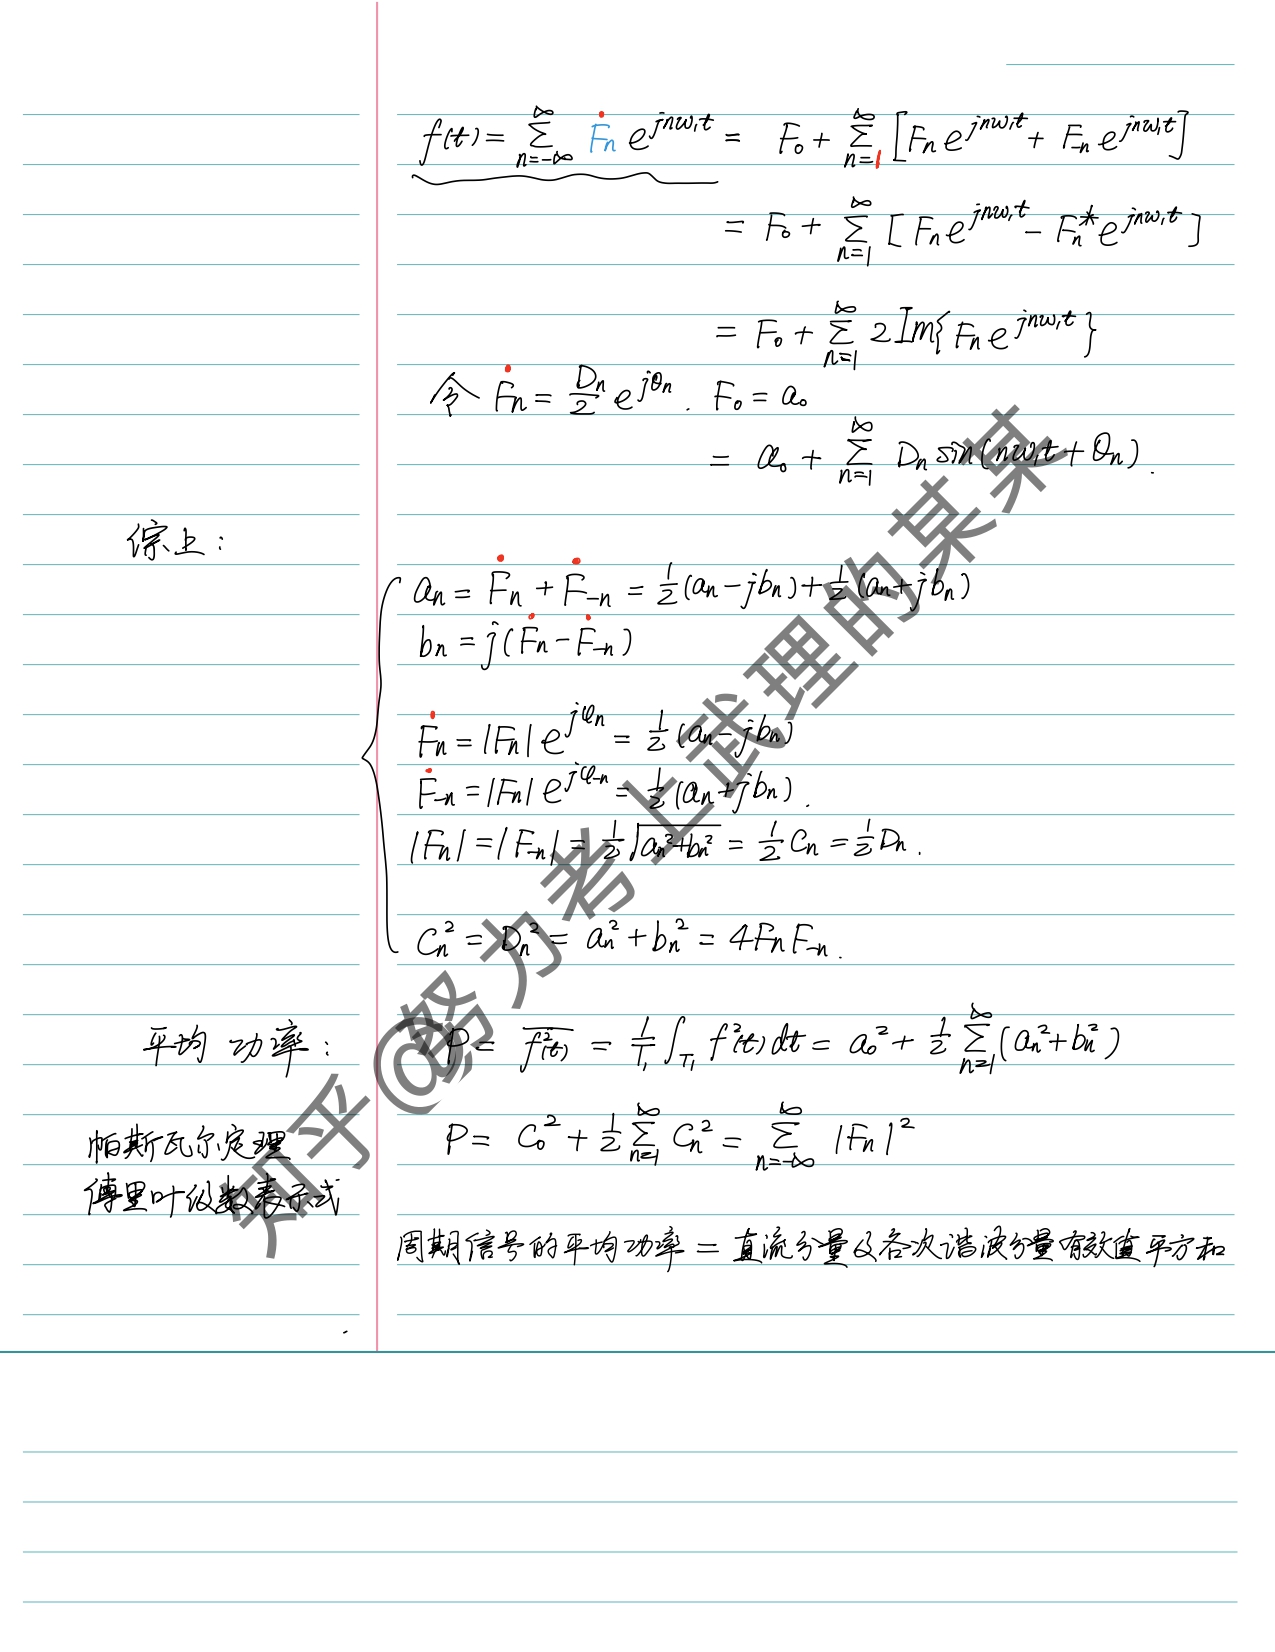 f(t) = ∑_{n=-∞}^{∞} Ḟn e^{jnω₁t} = F₀ + ∑_{n=1}^{∞} [Fn e^{jnω₁t} + F₋n e^{jnω₁t}]
= F₀ + ∑_{n=1}^{∞} [Fn e^{jnω₁t} - Fn* e^{jnω₁t}]
= F₀ + ∑_{n=1}^{∞} 2Im{Fn e^{jnω₁t}}
令 Ḟn = Dn/2 e^{jθn}. F₀ = a₀
= a₀ + ∑_{n=1}^{∞} Dn sin(nω₁t + θn).
综上:
an = Ḟn + Ḟ₋n = 1/2(an - jbn) + 1/2(an + jbn)
bn = j(Ḟn - Ḟ₋n)
Ḟn = |Fn| e^{jφn} = 1/2(an - jbn)
Ḟ₋n = |Fn| e^{jφ₋n} = 1/2(an + jbn).
|Fn| = |F₋n| = 1/2 √(an² + bn²) = 1/2 Cn = 1/2 Dn.
Cn² = Dn² = an² + bn² = 4FnF₋n.
平均功率: P = \overline{f²(t)} = 1/T₁ ∫_{T₁} f²(t)dt = a₀² + 1/2 ∑_{n=1}^{∞} (an² + bn²)
帕斯瓦尔定理 P = C₀² + 1/2 ∑_{n=1}^{∞} Cn² = ∑_{n=-∞}^{∞} |Fn|²
傅里叶级数表示式
周期信号的平均功率 = 直流分量及各次谐波分量有效值平方和
知乎@努力考上武理的某某